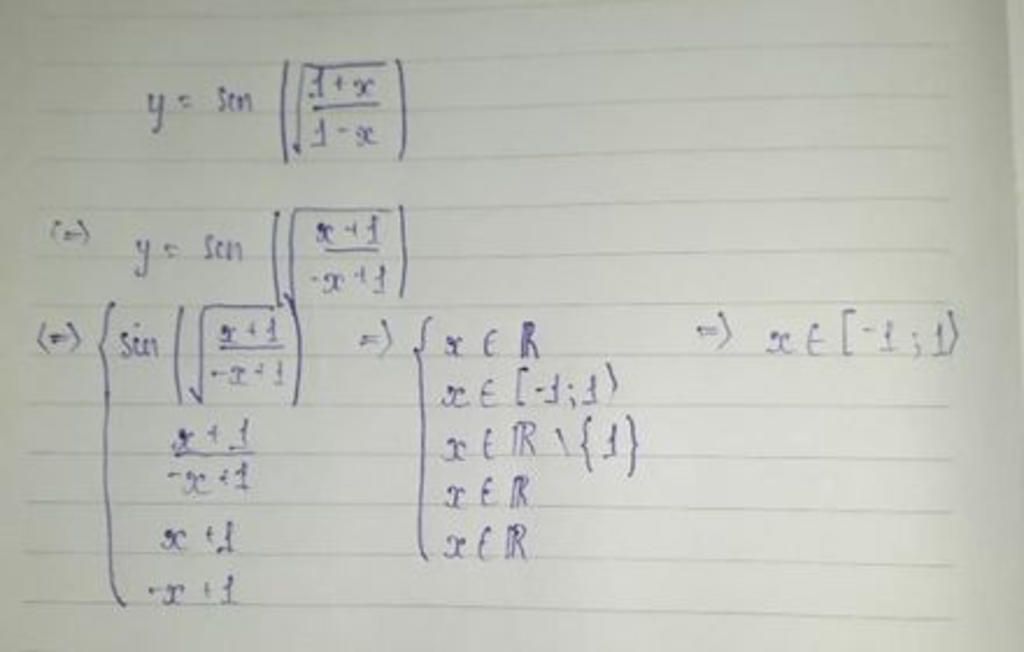 y = sin (√((1+x)/(1-x)))
(=) y = sin (√((x+1)/(-x+1)))
(=) { sin (√((x+1)/(-x+1))) =) { x ∈ ℝ =) x ∈ [-1;1)
x ∈ [-1;1)
(x+1)/(-x+1) x ∈ ℝ \ {1}
x+1 x ∈ ℝ
-x+1 x ∈ ℝ